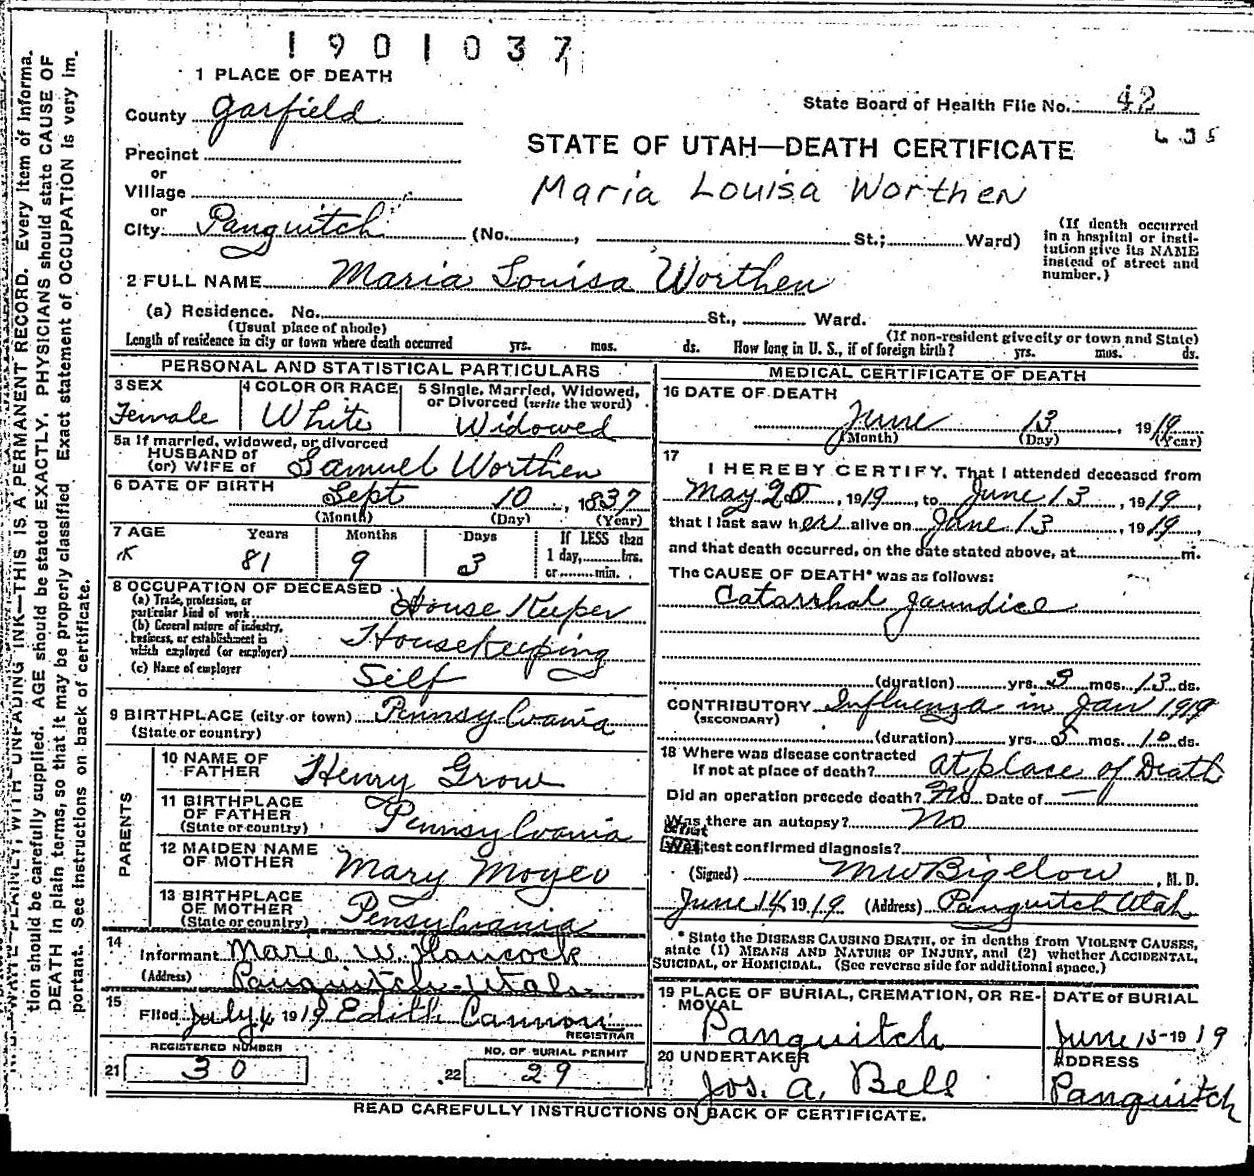 1901037
1 PLACE OF DEATH
County Garfield
State Board of Health File No. 42
Precinct
or
Village
or
City Panguitch (No. , St.; Ward)
STATE OF UTAH—DEATH CERTIFICATE
Maria Louisa Worthen
(If death occurred in a hospital or insti-
tution give its NAME
instead of street and
number.)
2 FULL NAME Maria Louisa Worthen
(a) Residence. No. St., Ward.
(Usual place of abode) (If non-resident give city or town and State)
Length of residence in city or town where death occurred yrs. mos. ds. How long in U. S., if of foreign birth? yrs. mos. ds.
PERSONAL AND STATISTICAL PARTICULARS
3 SEX Female
4 COLOR OR RACE White
5 Single, Married, Widowed,
or Divorced (write the word)
Widowed
5a If married, widowed, or divorced
HUSBAND of
(or) WIFE of Samuel Worthen
6 DATE OF BIRTH Sept 10, 1837
(Month) (Day) (Year)
7 AGE Years Months Days If LESS than
81 9 3 1 day, hrs.
or min.
8 OCCUPATION OF DECEASED
(a) Trade, profession, or
particular kind of work House Keeper
(b) General nature of industry,
business, or establishment in
which employed (or employer) Housekeeping
(c) Name of employer Self
9 BIRTHPLACE (city or town) Pennsylvania
(State or country)
PARENTS
10 NAME OF
FATHER Henry Grow
11 BIRTHPLACE
OF FATHER
(State or country) Pennsylvania
12 MAIDEN NAME
OF MOTHER Mary Moyer
13 BIRTHPLACE
OF MOTHER
(State or country) Pensylvania
14
Informant Marie W. Hancock
(Address) Panguitch Utah
15
Filed July 4 1919 Edith Cannon
REGISTRAR
REGISTERED NUMBER
21 30
NO. OF BURIAL PERMIT
22 29
MEDICAL CERTIFICATE OF DEATH
16 DATE OF DEATH
June 13, 1919
(Month) (Day) (Year)
17
I HEREBY CERTIFY, That I attended deceased from
May 20, 1919, to June 13, 1919,
that I last saw her alive on June 13, 1919,
and that death occurred, on the date stated above, at m.
The CAUSE OF DEATH* was as follows:
Catarrhal jaundice
(duration) yrs. mos. 13 ds.
CONTRIBUTORY Influenza in Jan 1919
(SECONDARY)
(duration) yrs. 5 mos. 10 ds.
18 Where was disease contracted
if not at place of death? at place of Death
Did an operation precede death? No Date of —
Was there an autopsy? No
What test confirmed diagnosis?
(Signed) MW Bigelow, M. D.
June 14 1919 (Address) Panguitch Utah
* State the DISEASE CAUSING DEATH, or in deaths from VIOLENT CAUSES,
state (1) MEANS AND NATURE OF INJURY, and (2) whether ACCIDENTAL,
SUICIDAL, or HOMICIDAL. (See reverse side for additional space.)
19 PLACE OF BURIAL, CREMATION, OR RE-
MOVAL
Panguitch
DATE of BURIAL
June 15-1919
20 UNDERTAKER
Jos. A. Bell
ADDRESS
Panguitch
READ CAREFULLY INSTRUCTIONS ON BACK OF CERTIFICATE.
WRITE PLAINLY, WITH UNFADING INK—THIS IS A PERMANENT RECORD. Every item of informa-
tion should be carefully supplied. AGE should be stated EXACTLY. PHYSICIANS should state CAUSE OF
DEATH in plain terms, so that it may be properly classified. Exact statement of OCCUPATION is very im-
portant. See instructions on back of certificate.